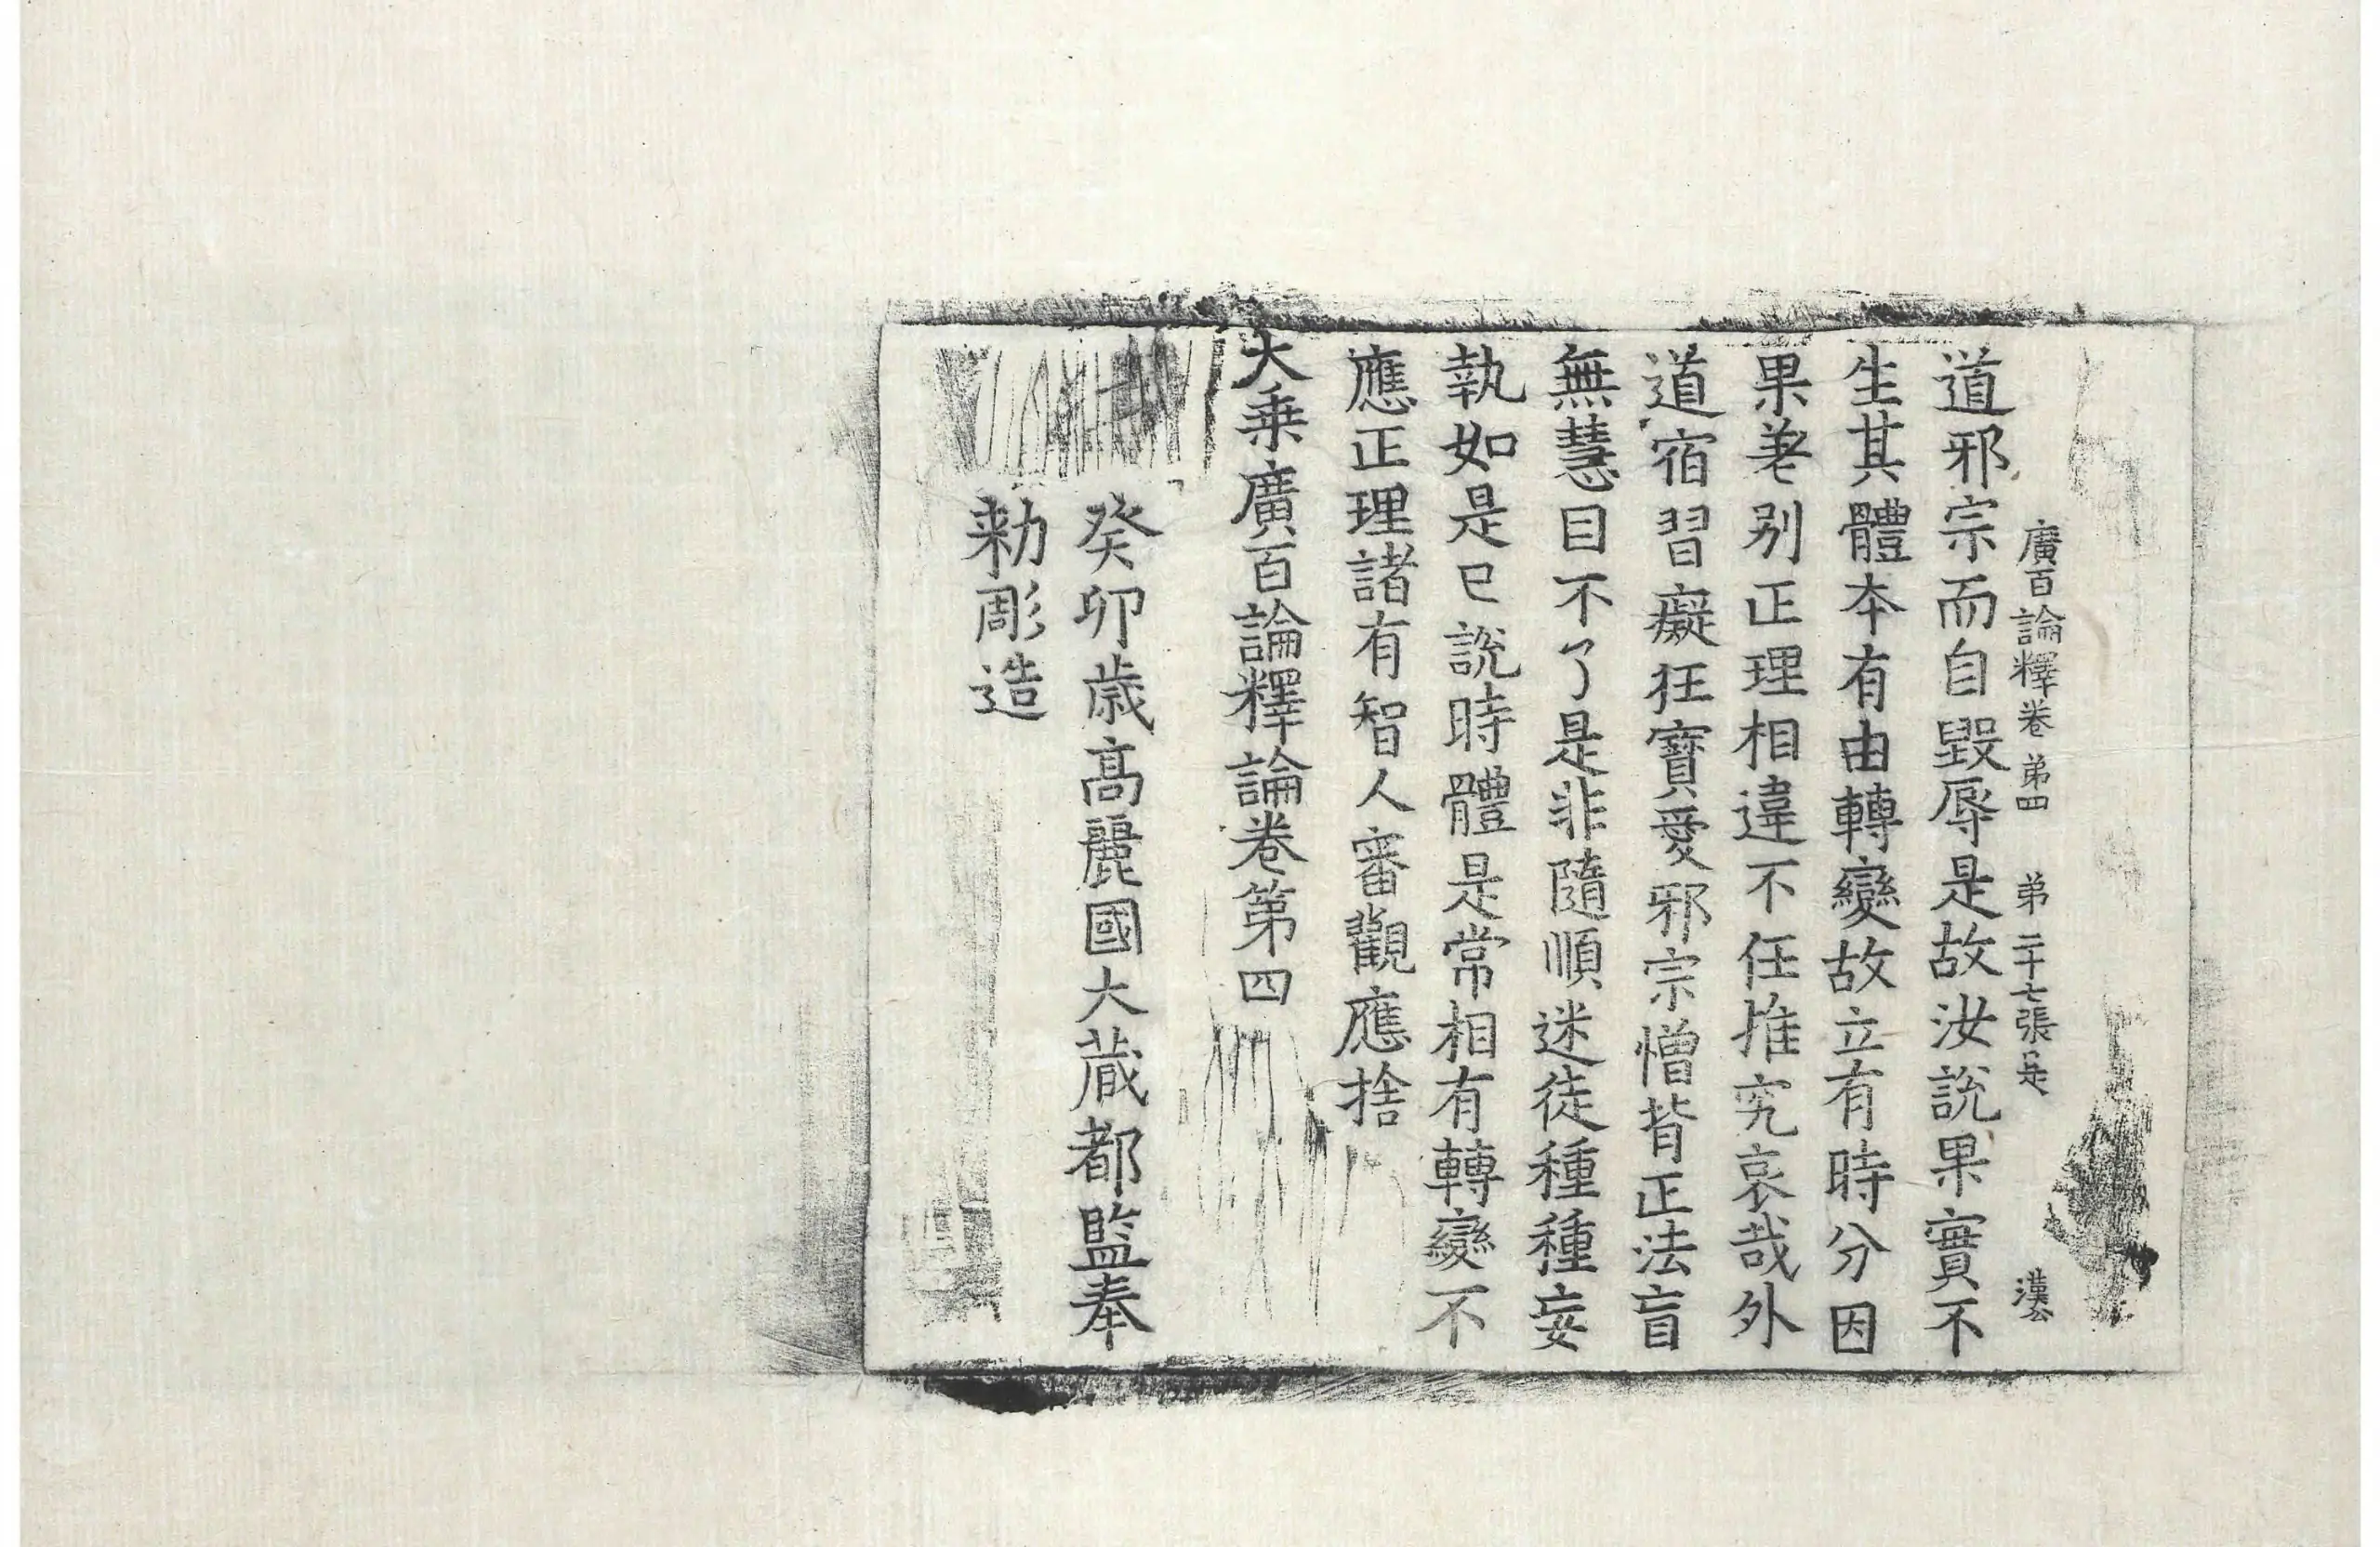 廣百論釋卷 第四 第二十七張 是 漢公
道邪宗而自毀辱是故汝說果實不
生其體本有由轉變故立有時分因
果差別正理相違不任推究哀哉外
道宿習癡狂寶愛邪宗憎背正法盲
無慧目不了是非隨順迷徒種種妄
執如是已說時體是常相有轉變不
應正理諸有智人審觀應捨
大乗廣百論釋論卷第四
癸卯歲高麗國大蔵都監奉
勑彫造